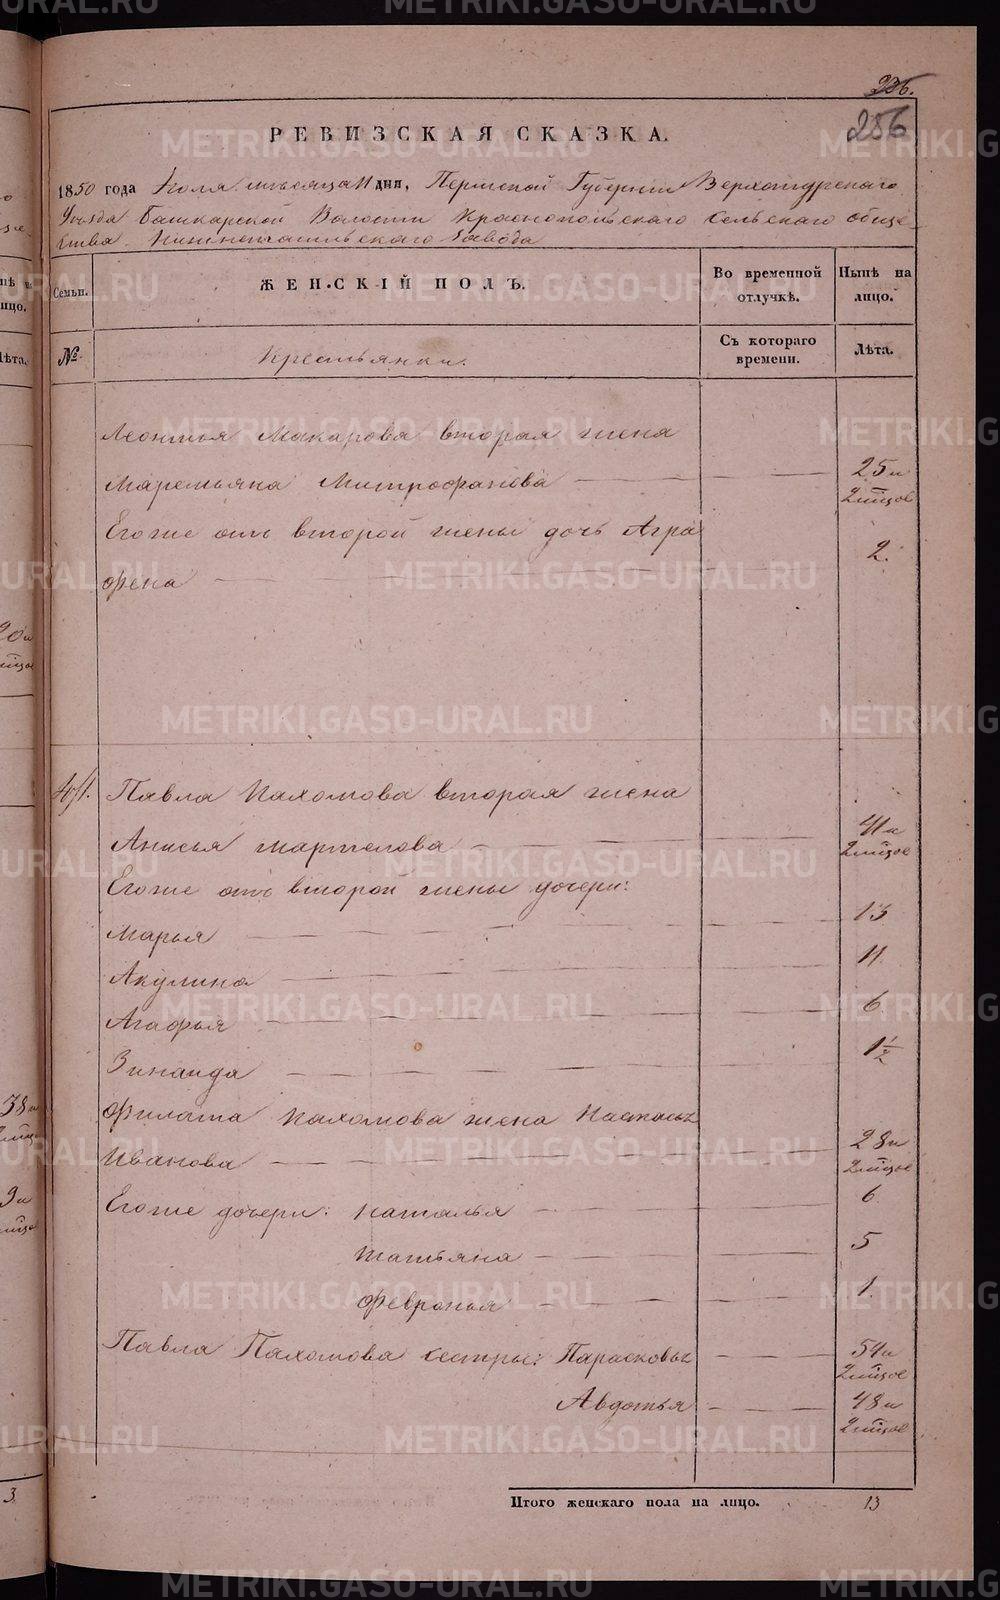 336.
256
РЕВИЗСКАЯ СКАЗКА.
1850 года Июля месяца 11 дня, Пермской Губернии Верхотурскаго
Уѣзда Башкарской Волости Краснопольскаго Сельскаго обще-
ства Нижнетагильскаго Завода
Семьи.
ЖЕНСКІЙ ПОЛЪ.
Во временной отлучкѣ.
Нынѣ на лицо.
№
Крестьянки.
Съ котораго времени.
Лѣта.
Леонтья Макарова вторая жена
Маремьяна Митрофанова 25 и 2 мѣсяцов
Егоже отъ второй жены дочь Агра
фена 2.
Павла Пахомова вторая жена
Анисья Мартелова 41 и 2 мѣсяцов
Егоже отъ второй жены дочери:
Марья 13
Акулина 11.
Агафья 6
Зинаида 1 1/2
Филата Пахомова жена Настасья
Иванова 28 и 2 мѣсяцов
Егоже дочери: Наталья 6
Татьяна 5
Февронья 1.
Павла Пахомова сестры: Парасковья 54 и 2 мѣсяцов
Авдотья 48 и 2 мѣсяцов
Итого женскаго пола на лицо. 13
METRIKI.GASO-URAL.RU